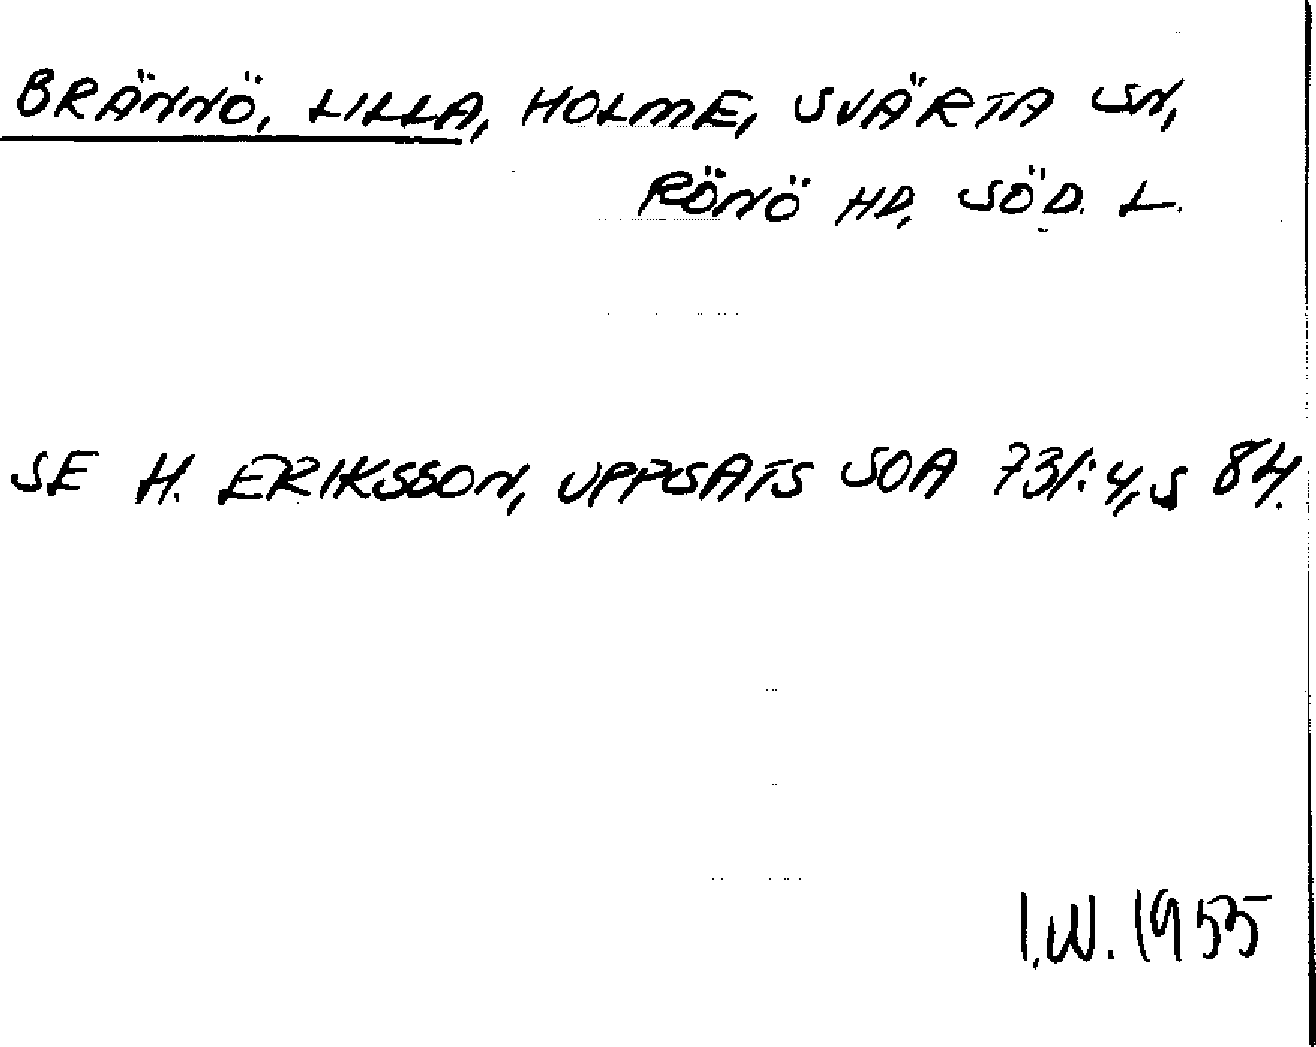 BRÄNNÖ, LILLA, HOLME, SVÄRTA SN,
RÖNÖ HD, SÖD. L.
SE H. ERIKSSON, UPPSATS SOA 73/:4, S 84.
I.W. 1955